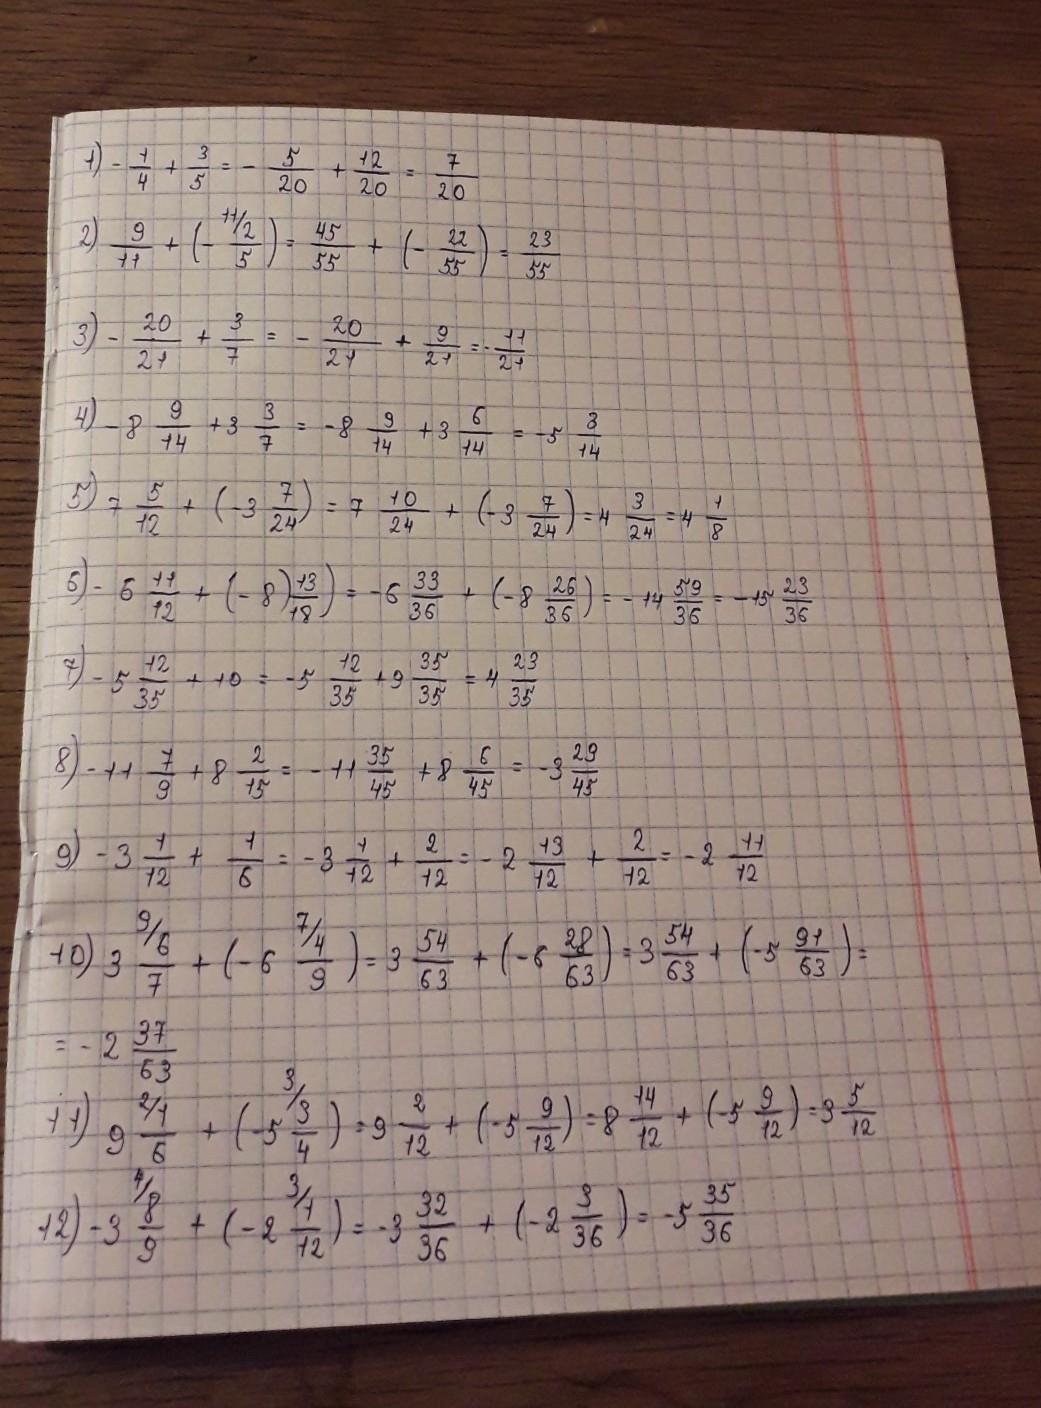 1) - 1/4 + 3/5 = - 5/20 + 12/20 = 7/20
2) 9/11 + (- 11/ 2/5) = 45/55 + (- 22/55) = 23/55
3) - 20/21 + 3/7 = - 20/21 + 9/21 = - 11/21
4) -8 9/14 + 3 3/7 = -8 9/14 + 3 6/14 = -5 3/14
5) 7 5/12 + (-3 7/24) = 7 10/24 + (-3 7/24) = 4 3/24 = 4 1/8
6) -6 11/12 + (-8) 13/18) = -6 33/36 + (-8 26/36) = -14 59/36 = -15 23/36
7) -5 12/35 + 10 = -5 12/35 + 9 35/35 = 4 23/35
8) -11 7/9 + 8 2/15 = -11 35/45 + 8 6/45 = -3 29/45
9) -3 1/12 + 1/6 = -3 1/12 + 2/12 = -2 13/12 + 2/12 = -2 11/12
10) 3 9/ 6/7 + (-6 7/ 4/9) = 3 54/63 + (-6 28/63) = 3 54/63 + (-5 91/63) =
= -2 37/63
11) 9 2/ 1/6 + (-5 3/ 3/4) = 9 2/12 + (-5 9/12) = 8 14/12 + (-5 9/12) = 3 5/12
12) -3 4/ 8/9 + (-2 3/ 1/12) = -3 32/36 + (-2 3/36) = -5 35/36